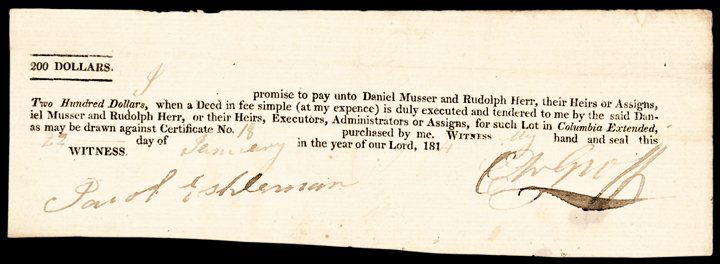 200 DOLLARS.
I
promise to pay unto Daniel Musser and Rudolph Herr, their Heirs or Assigns,
Two Hundred Dollars, when a Deed in fee simple (at my expence) is duly executed and tendered to me by the said Dan-
iel Musser and Rudolph Herr, or their Heirs, Executors, Administrators or Assigns, for such Lot in Columbia Extended,
as may be drawn against Certificate No. 18 purchased by me. WITNESS my hand and seal this
22 day of January in the year of our Lord, 181
WITNESS.
Jacob Eshleman